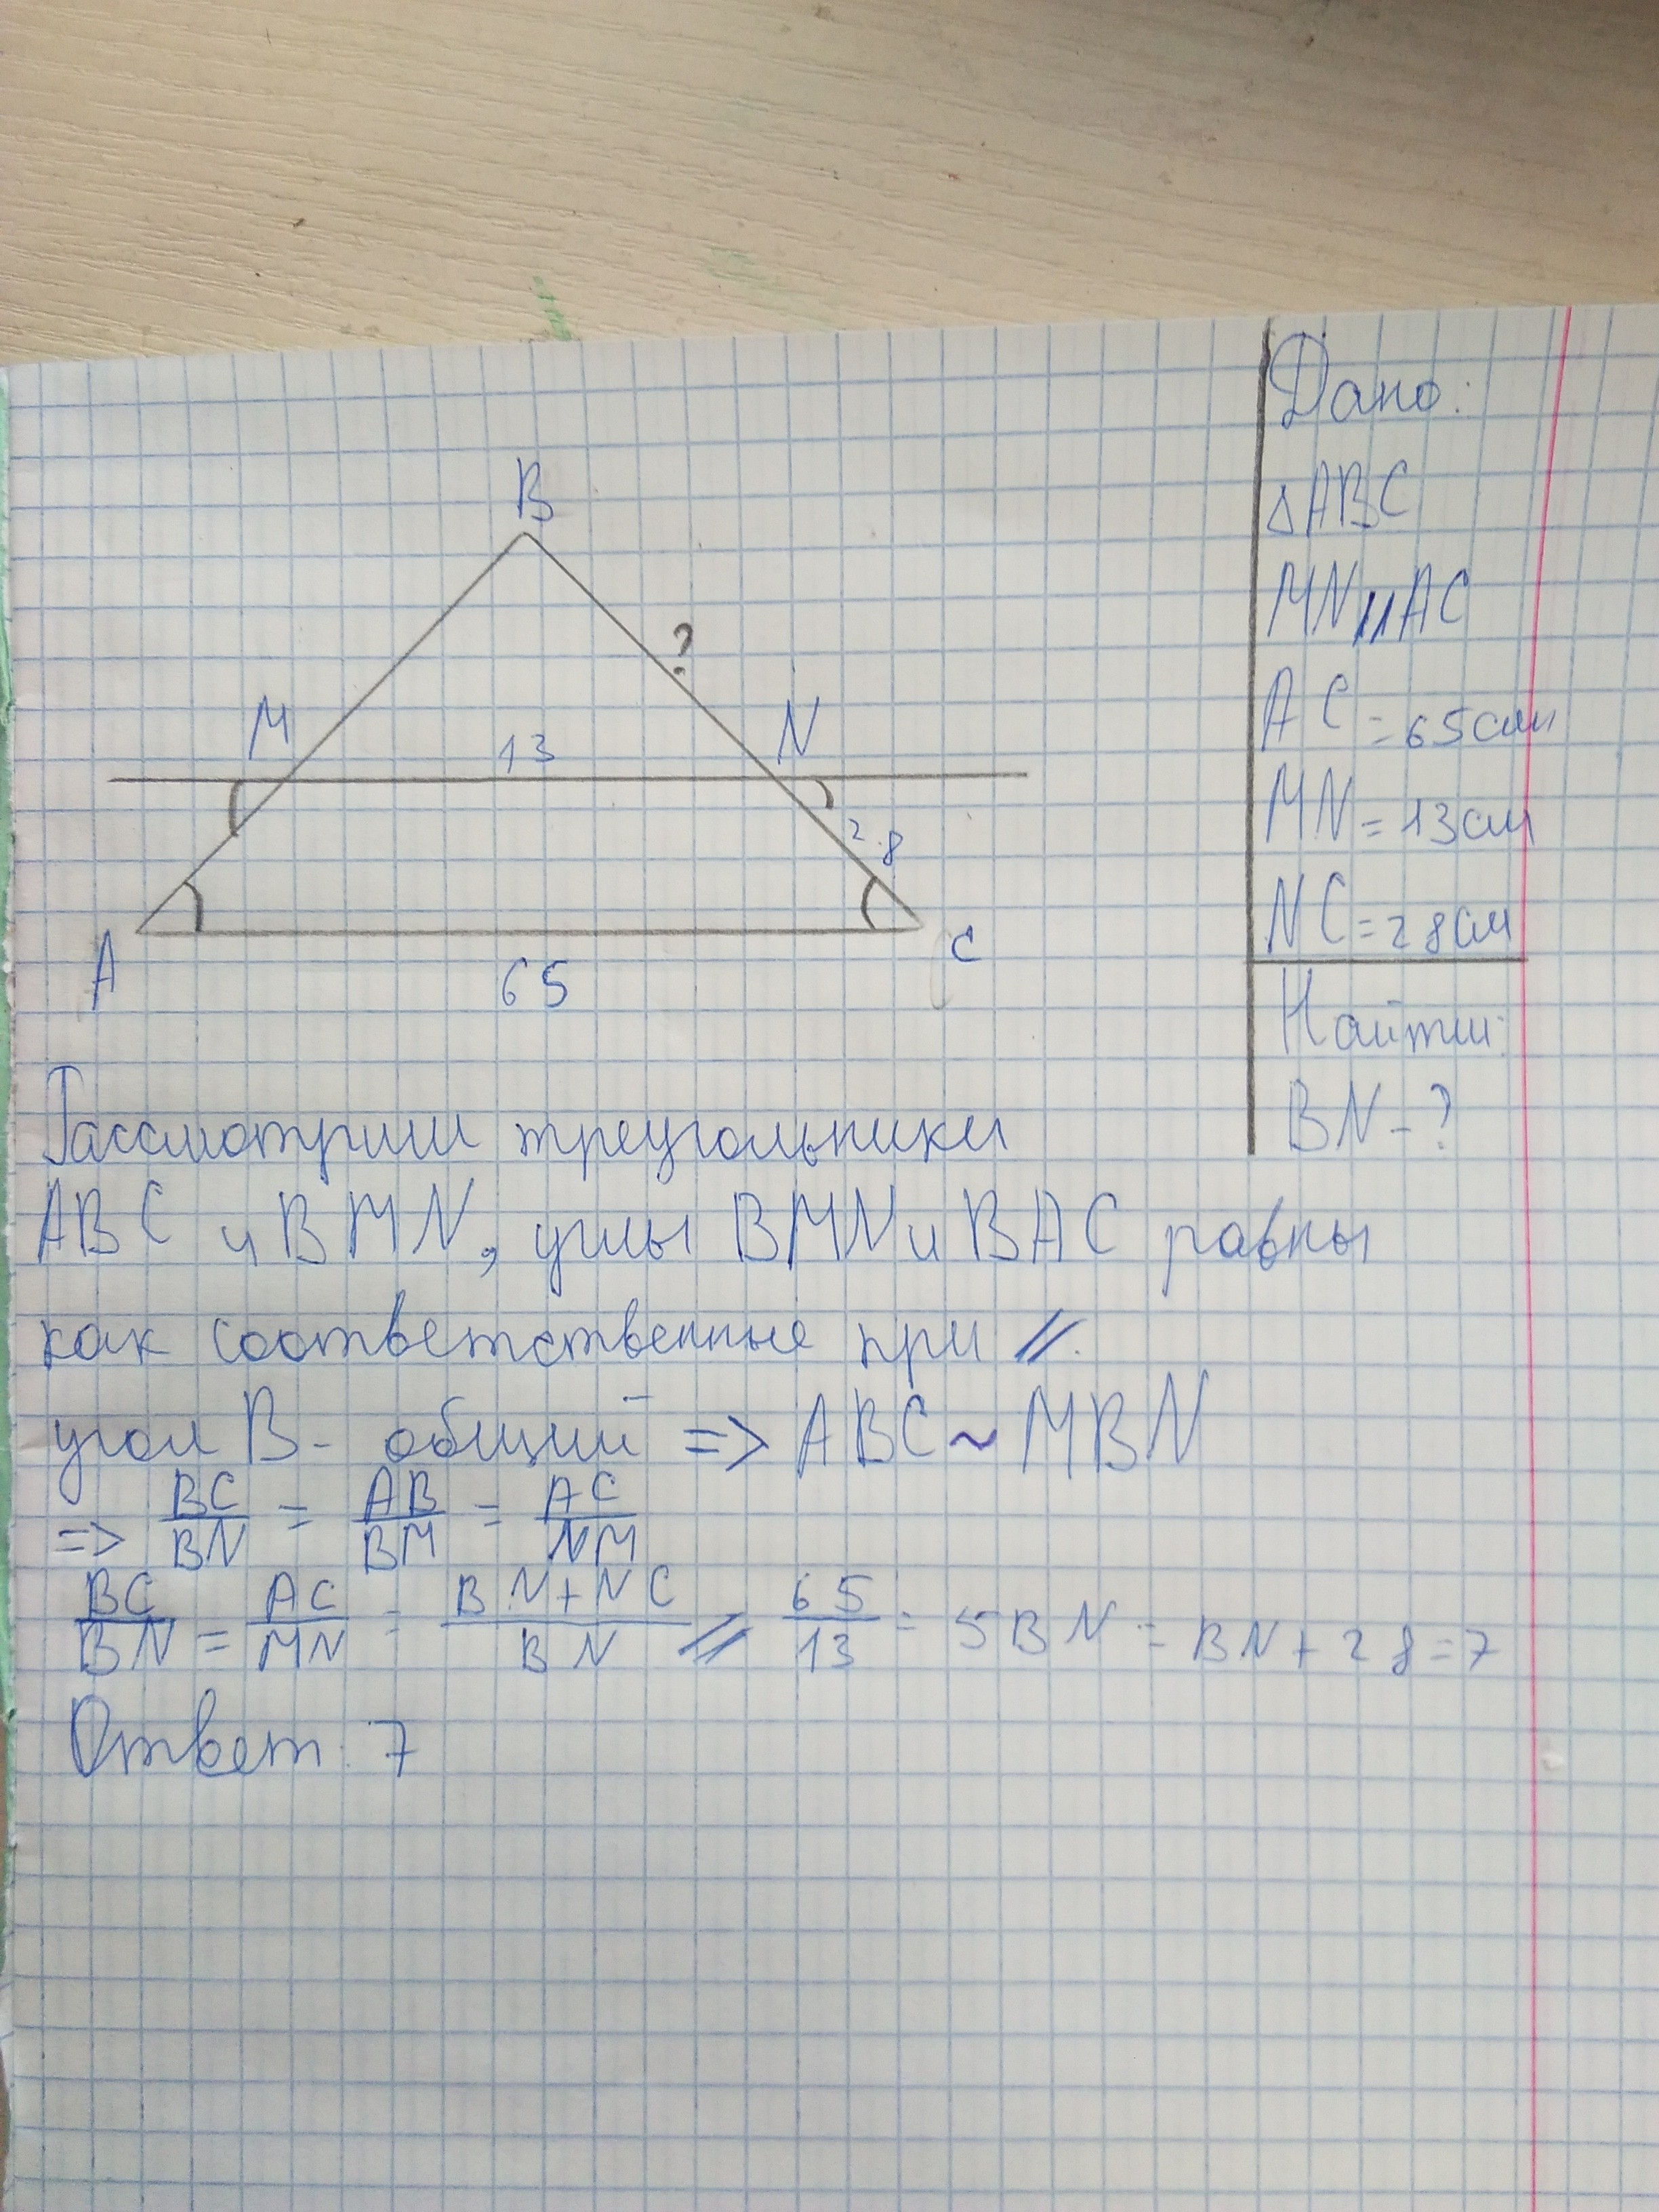 Дано:
△ABC
MN||AC
AC=65см
MN=13см
NC=28см
Найти:
BN-?
B
?
M
13
N
28
A
65
C
Рассмотрим треугольники
ABC и BMN, углы BMN и BAC равны
как соответственные при //.
угол B- общий => ABC~MBN
=> BC/BN = AB/BM = AC/NM
BC/BN = AC/MN = BN+NC/BN // 65/13 = 5BN = BN+28=7
Ответ: 7